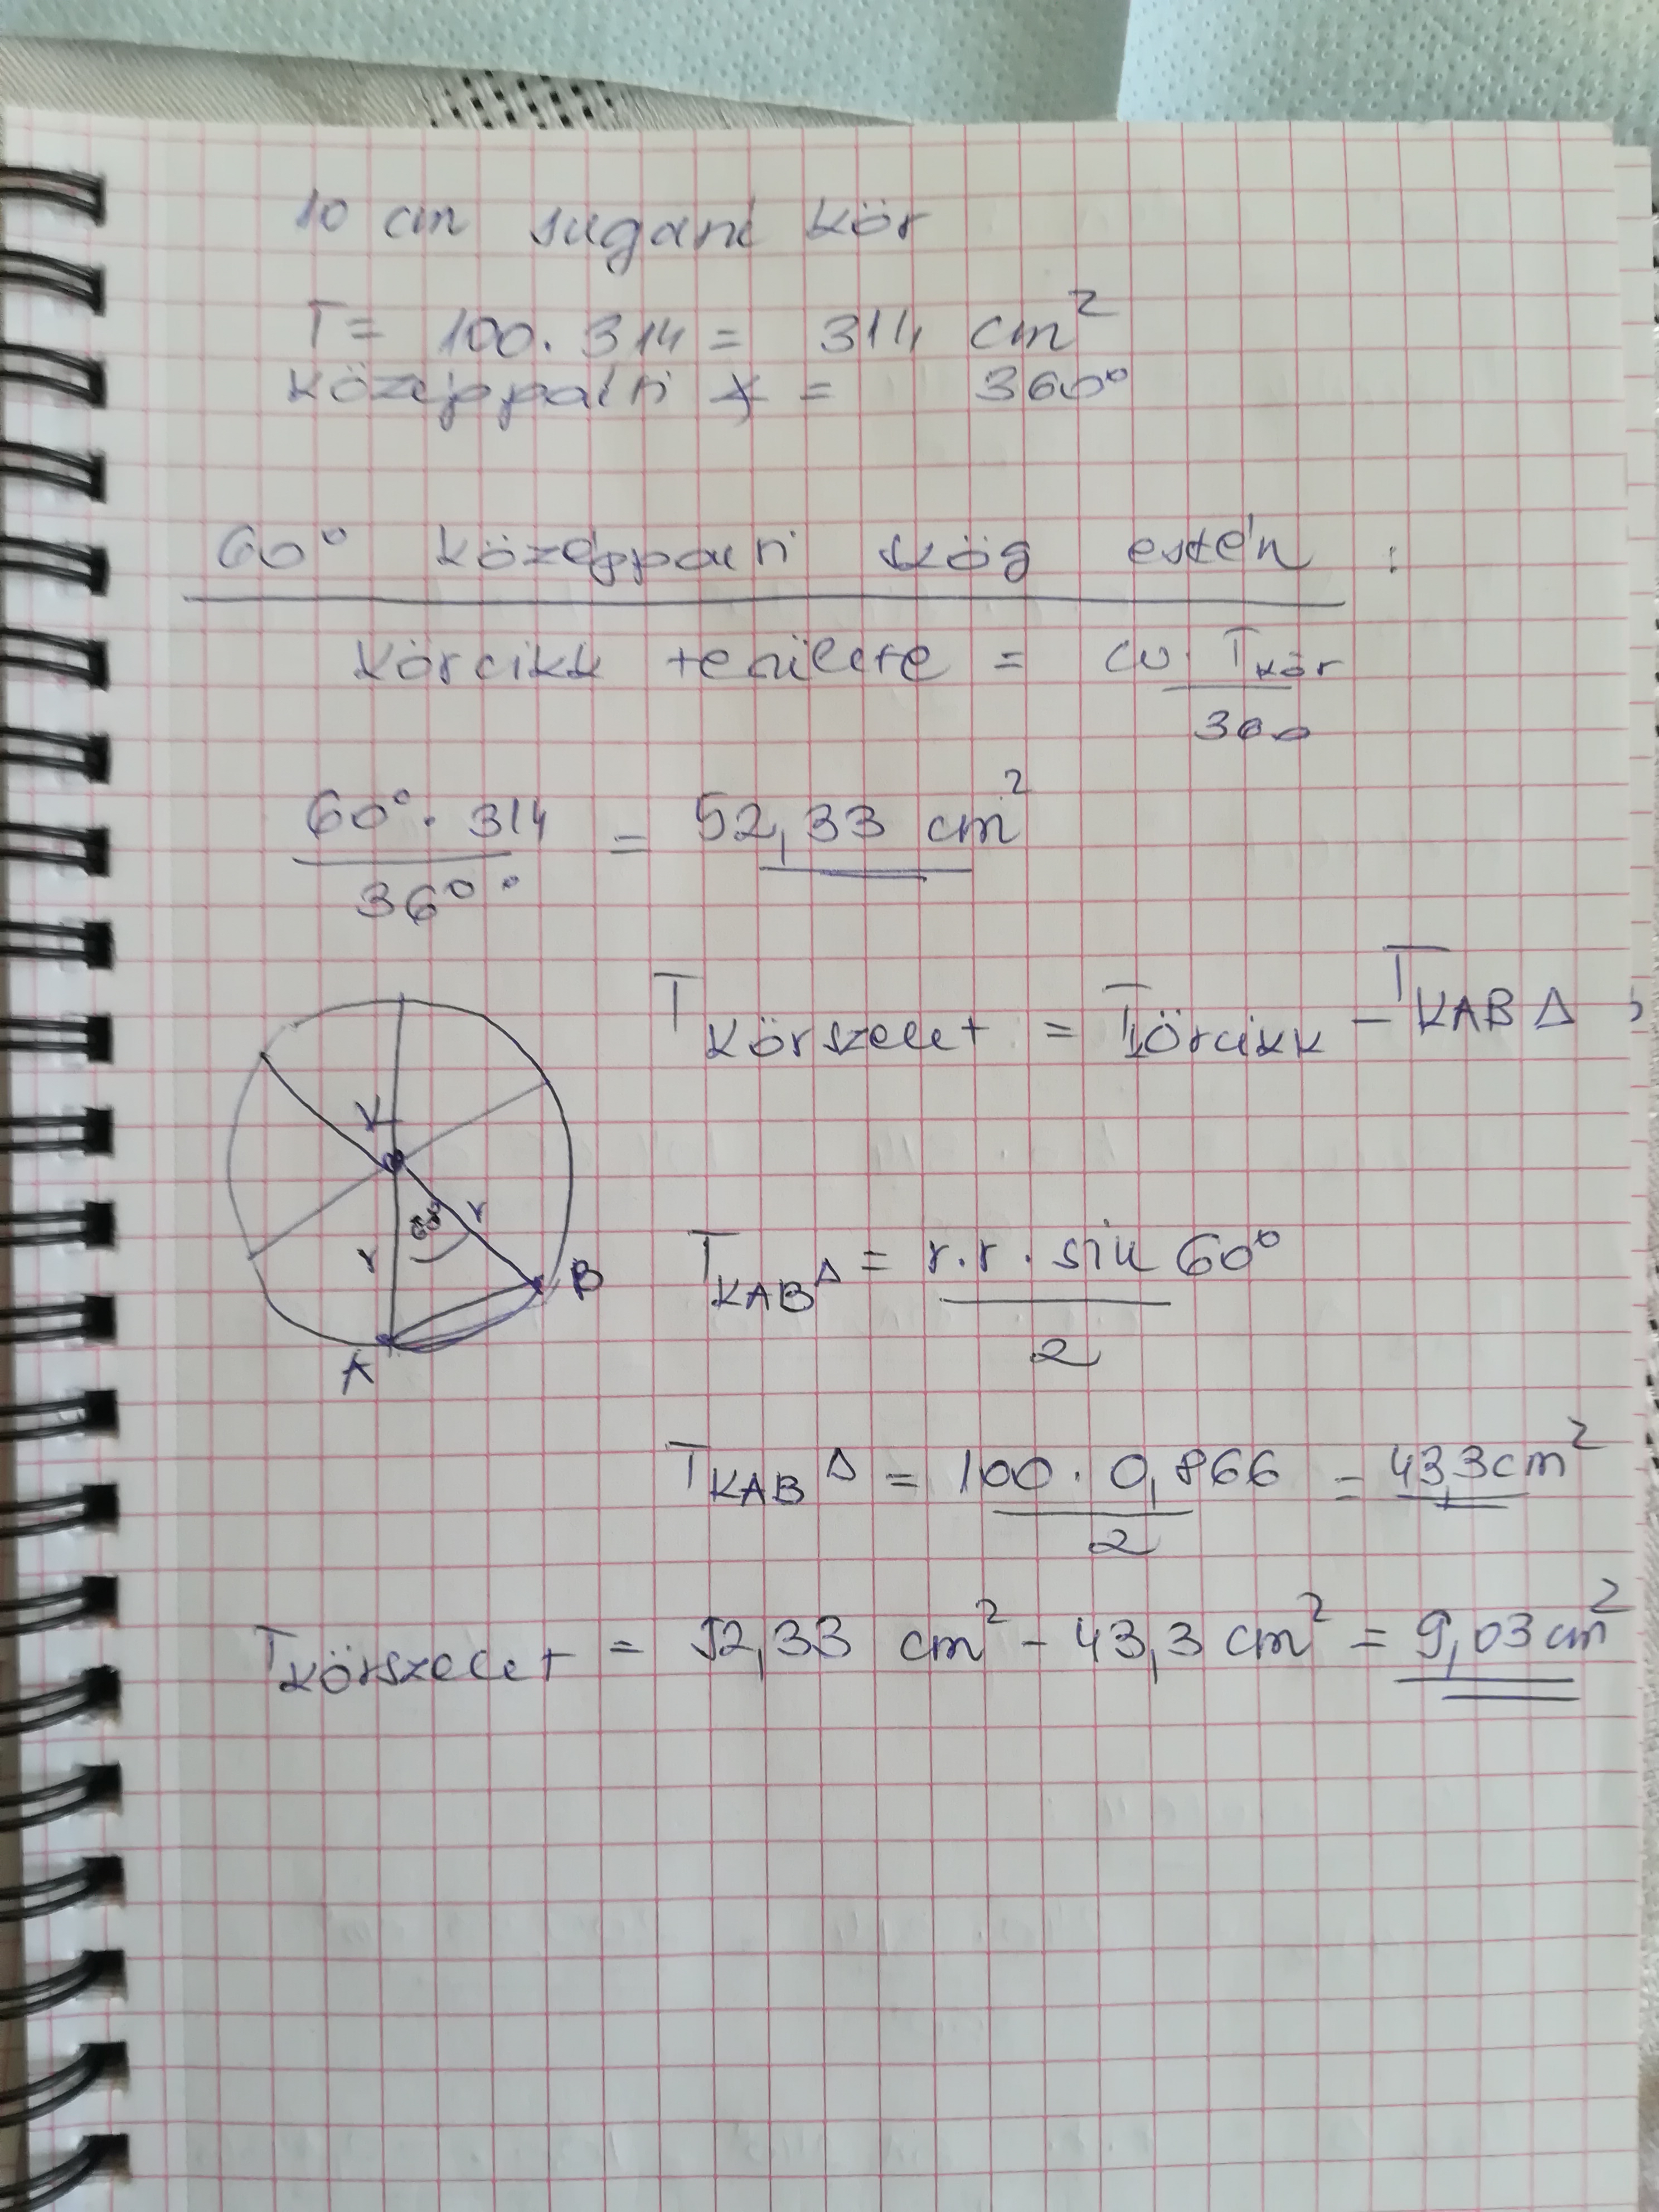 10 cm sugarú kör
T = 100 · 314 = 314 cm²
Középponti ∢ = 360°
60° középponti szög estén :
Körcikk területe = ω · Tkör / 360
60° · 314 / 360° = 52,33 cm²
T körszelet = T körcikk - T KAB Δ
K
60°
r
r
B
A
T KAB Δ = r · r · sin 60° / 2
T KAB Δ = 100 · 0,866 / 2 = 43,3 cm²
T körszelet = 52,33 cm² - 43,3 cm² = 9,03 cm²